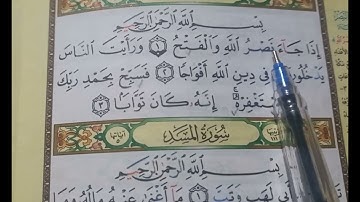 بِسْمِ ٱللَّهِ ٱلرَّحْمَٰنِ ٱلرَّحِيمِ
إِذَا جَآءَ نَصْرُ ٱللَّهِ وَٱلْفَتْحُ ١ وَرَأَيْتَ ٱلنَّاسَ
يَدْخُلُونَ فِى دِينِ ٱللَّهِ أَفْوَاجًا ٢ فَسَبِّحْ بِحَمْدِ رَبِّكَ
وَٱسْتَغْفِرْهُ إِنَّهُۥ كَانَ تَوَّابًۢا ٣
سُورَةُ المَسَدِ
بِسْمِ ٱللَّهِ ٱلرَّحْمَٰنِ ٱلرَّحِيمِ
أَبِى لَهَبٍ وَتَبَّ ١ مَآ أَغْنَىٰ عَنْهُ مَالُهُۥ وَمَا